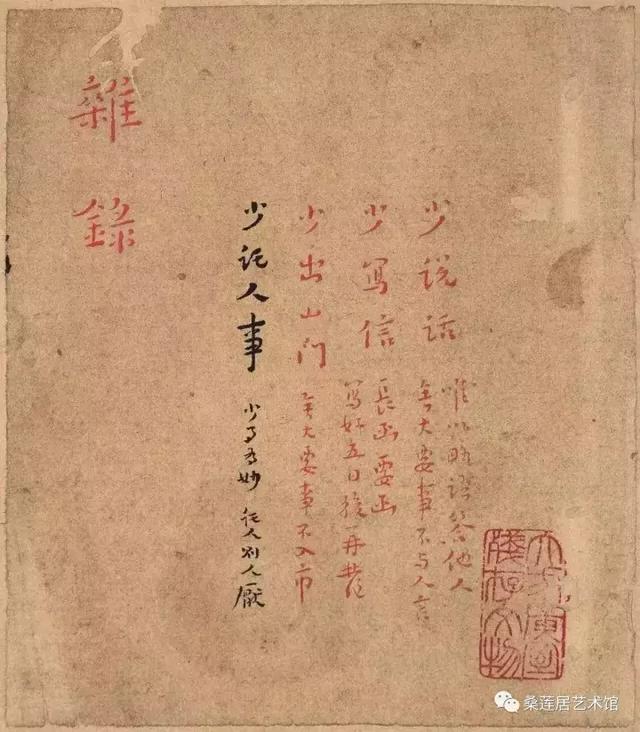 少說話
唯以略語答他人
無大要事不与人言
少寫信
長函要函
寫好五日後再發
少出山门
無大要事不入市
少託人事
少 為妙 託人別人厭
雜錄
桑莲居艺术馆